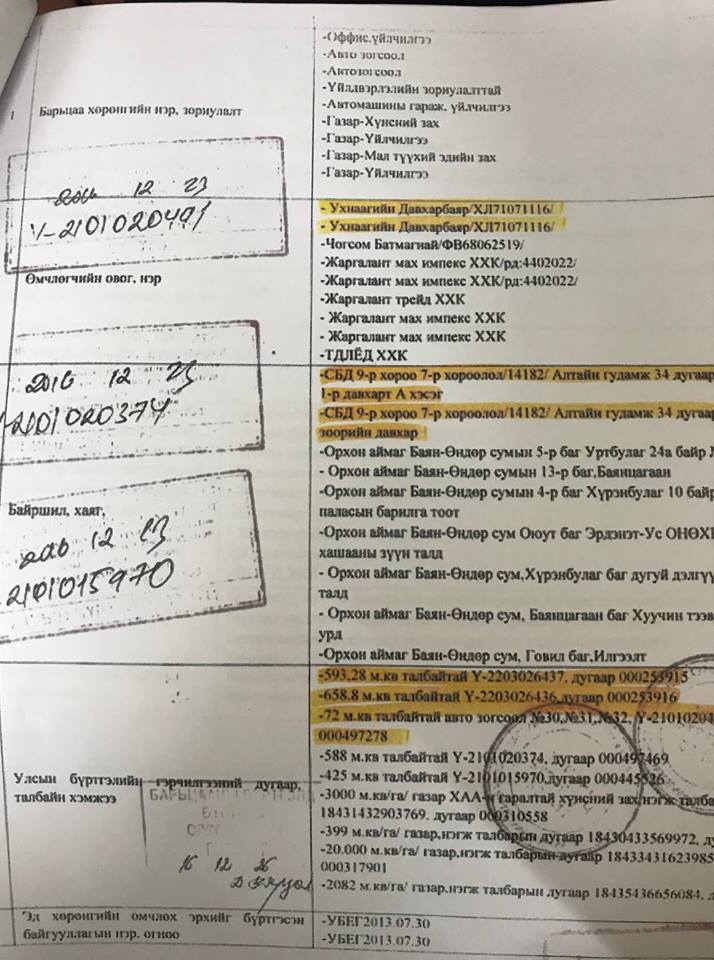 -Оффис.үйлчилгээ
-Авто зогсоол
-Автозогсоол
-Үйлдвэрлэлийн зориулалттай
-Автомашины гараж. үйлчилгээ
-Газар-Хүнсний зах
-Газар-Үйлчилгээ
-Газар-Мал түүхий эдийн зах
-Газар-Үйлчилгээ
1 Барьцаа хөрөнгийн нэр, зориулалт
12 23
У-2101020491
- Ухнаагийн Давхарбаяр/ХЛ71071116/
- Ухнаагийн Давхарбаяр/ХЛ71071116/
-Чогсом Батмагнай/ФВ68062519/
-Жаргалант мах импекс ХХК/рд:4402022/
-Жаргалант мах импекс ХХК/рд:4402022/
-Жаргалант трейд ХХК
- Жаргалант мах импекс ХХК
- Жаргалант мах импекс ХХК
-ТДЛЁД ХХК
Өмчлөгчийн овог, нэр
2016 12 23
-2101020374
-СБД 9-р хороо 7-р хороолол/14182/ Алтайн гудамж 34 дугаар
1-р давхарт А хэсэг
-СБД 9-р хороо 7-р хороолол/14182/ Алтайн гудамж 34 дугаар
зоорийн давхар
-Орхон аймаг Баян-Өндөр сумын 5-р баг Уртбулаг 24а байр
- Орхон аймаг Баян-Өндөр сумын 13-р баг,Баянцагаан
-Орхон аймаг Баян-Өндөр сумын 4-р баг Хүрэнбулаг 10 байр
паласын барилга тоот
-Орхон аймаг Баян-Өндөр сум Оюут баг Эрдэнэт-Ус
хашааны зүүн талд
- Орхон аймаг Баян-Өндөр сум,Хүрэнбулаг баг дугуй
талд
- Орхон аймаг Баян-Өндөр сум, Баянцагаан баг Хуучин
урд
-Орхон аймаг Баян-Өндөр сум, Говил баг,Илгээлт
Байршил, хаяг,
12 23
2101015970
-593,28 м.кв талбайтай Ү-2203026437, дугаар 000253915
-658.8 м.кв талбайтай Ү-2203026436,дугаар 000253916
-72 м.кв талбайтай авто зогсоол №30,№31,№32, Ү-21010204
000497278
-588 м.кв талбайтай Ү-2101020374, дугаар 000497469
-425 м.кв талбайтай Ү-2101015970,дугаар 000445526
-3000 м.кв/га/ газар ХАА-н гаралтай хүнсний зах,нэгж
18431432903769. дугаар 000310558
-399 м.кв/га/ газар,нэгж талбарын дугаар 18430433569972,
-20.000 м.кв/га/ газар,нэгж талбарын дугаар 1843343162398
000317901
-2082 м.кв/га/ газар,нэгж талбарын дугаар 18435436656084,
Улсын бүртгэлийн гэрчилгээний дугаар,
талбайн хэмжээ
16 12 26
Эд хөрөнгийн өмчлөх эрхийг бүртгэсэн
байгууллагын нэр. огноо
-УБЕГ2013.07.30
-УБЕГ2013.07.30